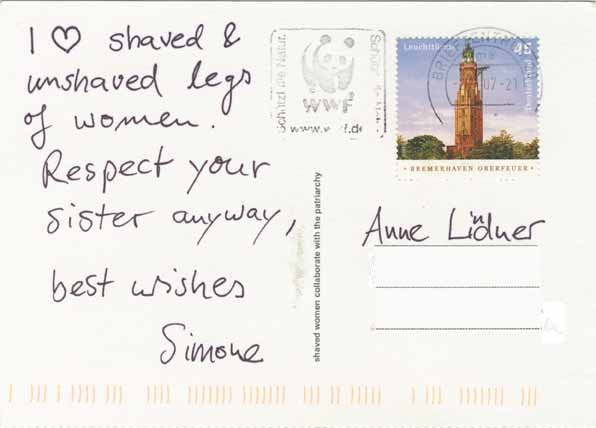 I ♡ shaved &
unshaved legs
of women.
Respect your
sister anyway,
best wishes
Simone
shaved women collaborate with the patriarchy
Schützt die Natur.
WWF
www.wwf.de
Leuchttürme
45
Deutschland
BREMERHAVEN OBERFEUER
BRIEFZENTRUM
07-21
Anne Lindner